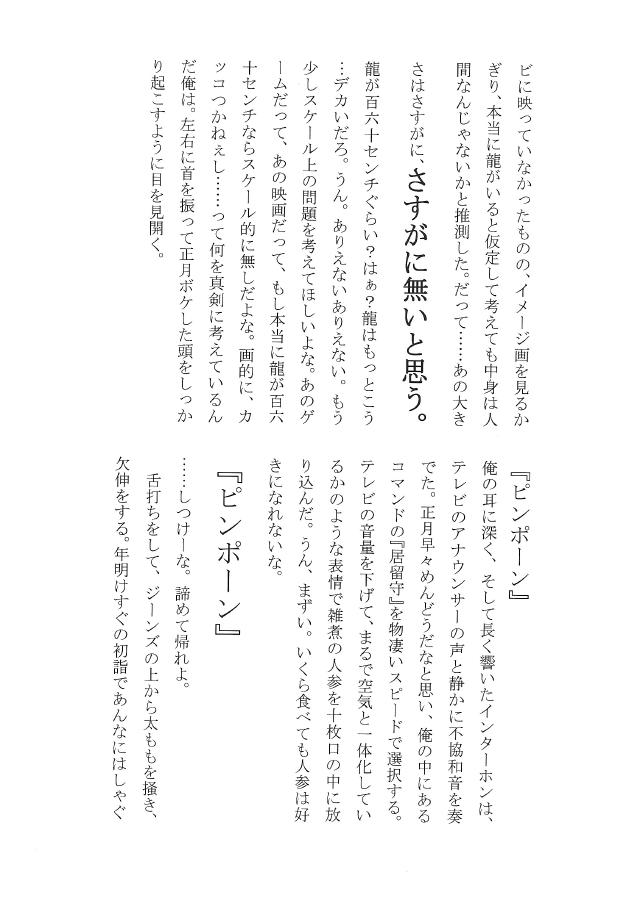 ビに映っていなかったものの、イメージ画を見るか
ぎり、本当に龍がいると仮定して考えても中身は人
間なんじゃないかと推測した。だって……あの大き
さはさすがに、さすがに無いと思う。
龍が百六十センチぐらい？はぁ？龍はもっとこう
…デカいだろ。うん。ありえないありえない。もう
少しスケール上の問題を考えてほしいよな。あのゲ
ームだって、あの映画だって、もし本当に龍が百六
十センチならスケール的に無しだよな。画的に、カ
ッコつかねぇし……って何を真剣に考えているん
だ俺は。左右に首を振って正月ボケした頭をしっか
り起こすように目を見開く。
『ピンポーン』
俺の耳に深く、そして長く響いたインターホンは、
テレビのアナウンサーの声と静かに不協和音を奏
でた。正月早々めんどうだなと思い、俺の中にある
コマンドの『居留守』を物凄いスピードで選択する。
テレビの音量を下げて、まるで空気と一体化してい
るかのような表情で雑煮の人参を十枚口の中に放
り込んだ。うん、まずい。いくら食べても人参は好
きになれないな。
『ピンポーン』
……しつけーな。諦めて帰れよ。
舌打ちをして、ジーンズの上から太ももを掻き、
欠伸をする。年明けすぐの初詣であんなにはしゃぐ